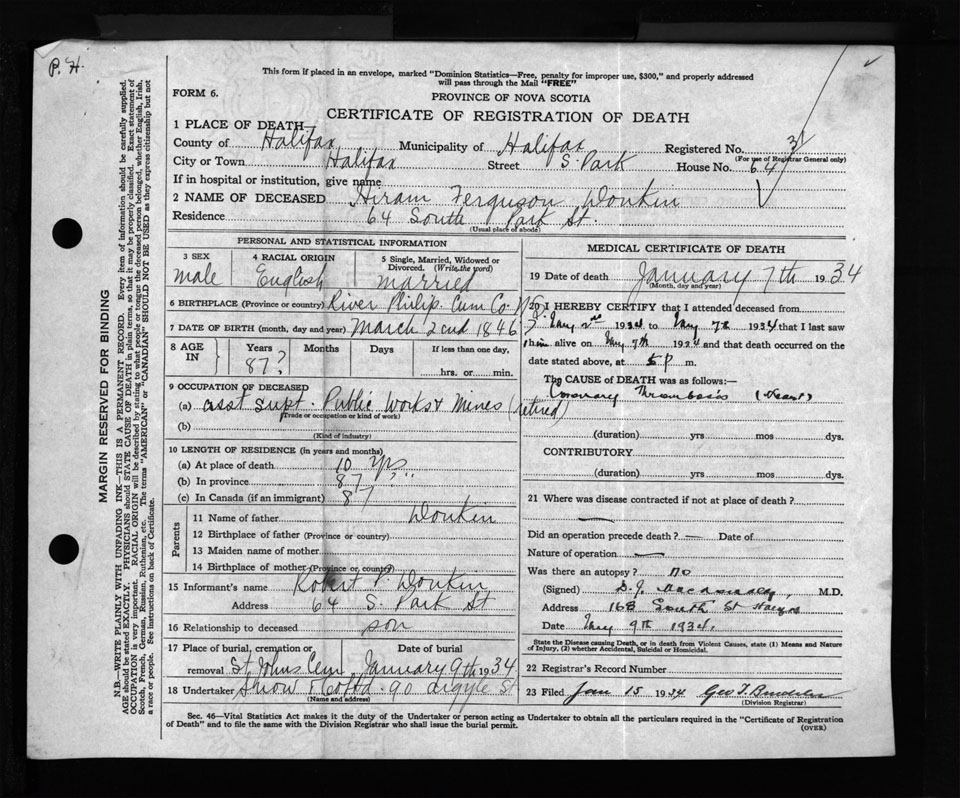 P. H.
This form if placed in an envelope, marked "Dominion Statistics—Free, penalty for improper use, $300," and properly addressed
will pass through the Mail "FREE"
FORM 6.
PROVINCE OF NOVA SCOTIA
CERTIFICATE OF REGISTRATION OF DEATH
1 PLACE OF DEATH—
County of Halifax Municipality of Halifax Registered No. 31
(For use of Registrar General only)
City or Town Halifax Street S. Park House No. 64
If in hospital or institution, give name
2 NAME OF DECEASED Hiram Ferguson Donkin
Residence 64 South Park St.
(Usual place of abode)
PERSONAL AND STATISTICAL INFORMATION
3 SEX 4 RACIAL ORIGIN 5 Single, Married, Widowed or
Divorced. (Write the word)
male English married
6 BIRTHPLACE (Province or country) River Philip. Cum Co. N.S.
7 DATE OF BIRTH (month, day and year) March 2nd 1846
8 AGE IN Years Months Days If less than one day,
87? hrs. or min.
9 OCCUPATION OF DECEASED
(a) asst Supt. Public Works & Mines (retired)
(Trade or occupation or kind of work)
(b)
(Kind of industry)
10 LENGTH OF RESIDENCE (in years and months)
(a) At place of death 10 yrs.
(b) In province 87
(c) In Canada (if an immigrant) 87
Parents
11 Name of father Donkin
12 Birthplace of father (Province or country)
13 Maiden name of mother
14 Birthplace of mother (Province or country)
15 Informant's name Robert F. Donkin
Address 64 S. Park St
16 Relationship to deceased son
17 Place of burial, cremation or Date of burial
removal St Johns Cem January 9th 1934
18 Undertaker Snow & Co Ltd. 90 Argyle St
(Name and address)
MEDICAL CERTIFICATE OF DEATH
19 Date of death January 7th 1934
(Month, day and year)
20 I HEREBY CERTIFY that I attended deceased from
Jany 2nd 1934 to Jany 7th 1934 that I last saw
him alive on Jany 7th 1934 and that death occurred on the
date stated above, at 5 P m.
The CAUSE of DEATH was as follows:—
Coronary Thrombosis (Heart)
(duration) yrs mos dys.
CONTRIBUTORY
(duration) yrs mos dys.
21 Where was disease contracted if not at place of death?
Did an operation precede death? — Date of
Nature of operation —
Was there an autopsy? no
(Signed) M.D.
Address 168 South St
Date Jany 9th 1934.
State the Disease causing Death, or in death from Violent Causes, state (1) Means and Nature
of Injury, (2) whether Accidental, Suicidal or Homicidal.
22 Registrar's Record Number
23 Filed Jan 15 1934 Geo
(Division Registrar)
Sec. 46—Vital Statistics Act makes it the duty of the Undertaker or person acting as Undertaker to obtain all the particulars required in the "Certificate of Registration
of Death" and to file the same with the Division Registrar who shall issue the burial permit.
(OVER)
MARGIN RESERVED FOR BINDING
N.B.—WRITE PLAINLY WITH UNFADING INK—THIS IS A PERMANENT RECORD. Every item of information should be carefully supplied.
AGE should be stated EXACTLY. PHYSICIANS should STATE CAUSE OF DEATH in plain terms, so that it may be properly classified. Exact statement of
OCCUPATION is very important. RACIAL ORIGIN will be described by stating to what people or tongue the deceased person belonged, whether English, Irish,
Scotch, French, German, Russian, Ruthenian, etc. The terms "AMERICAN" or "CANADIAN" SHOULD NOT BE USED as they express citizenship but not
a race or people. See instructions on back of Certificate.